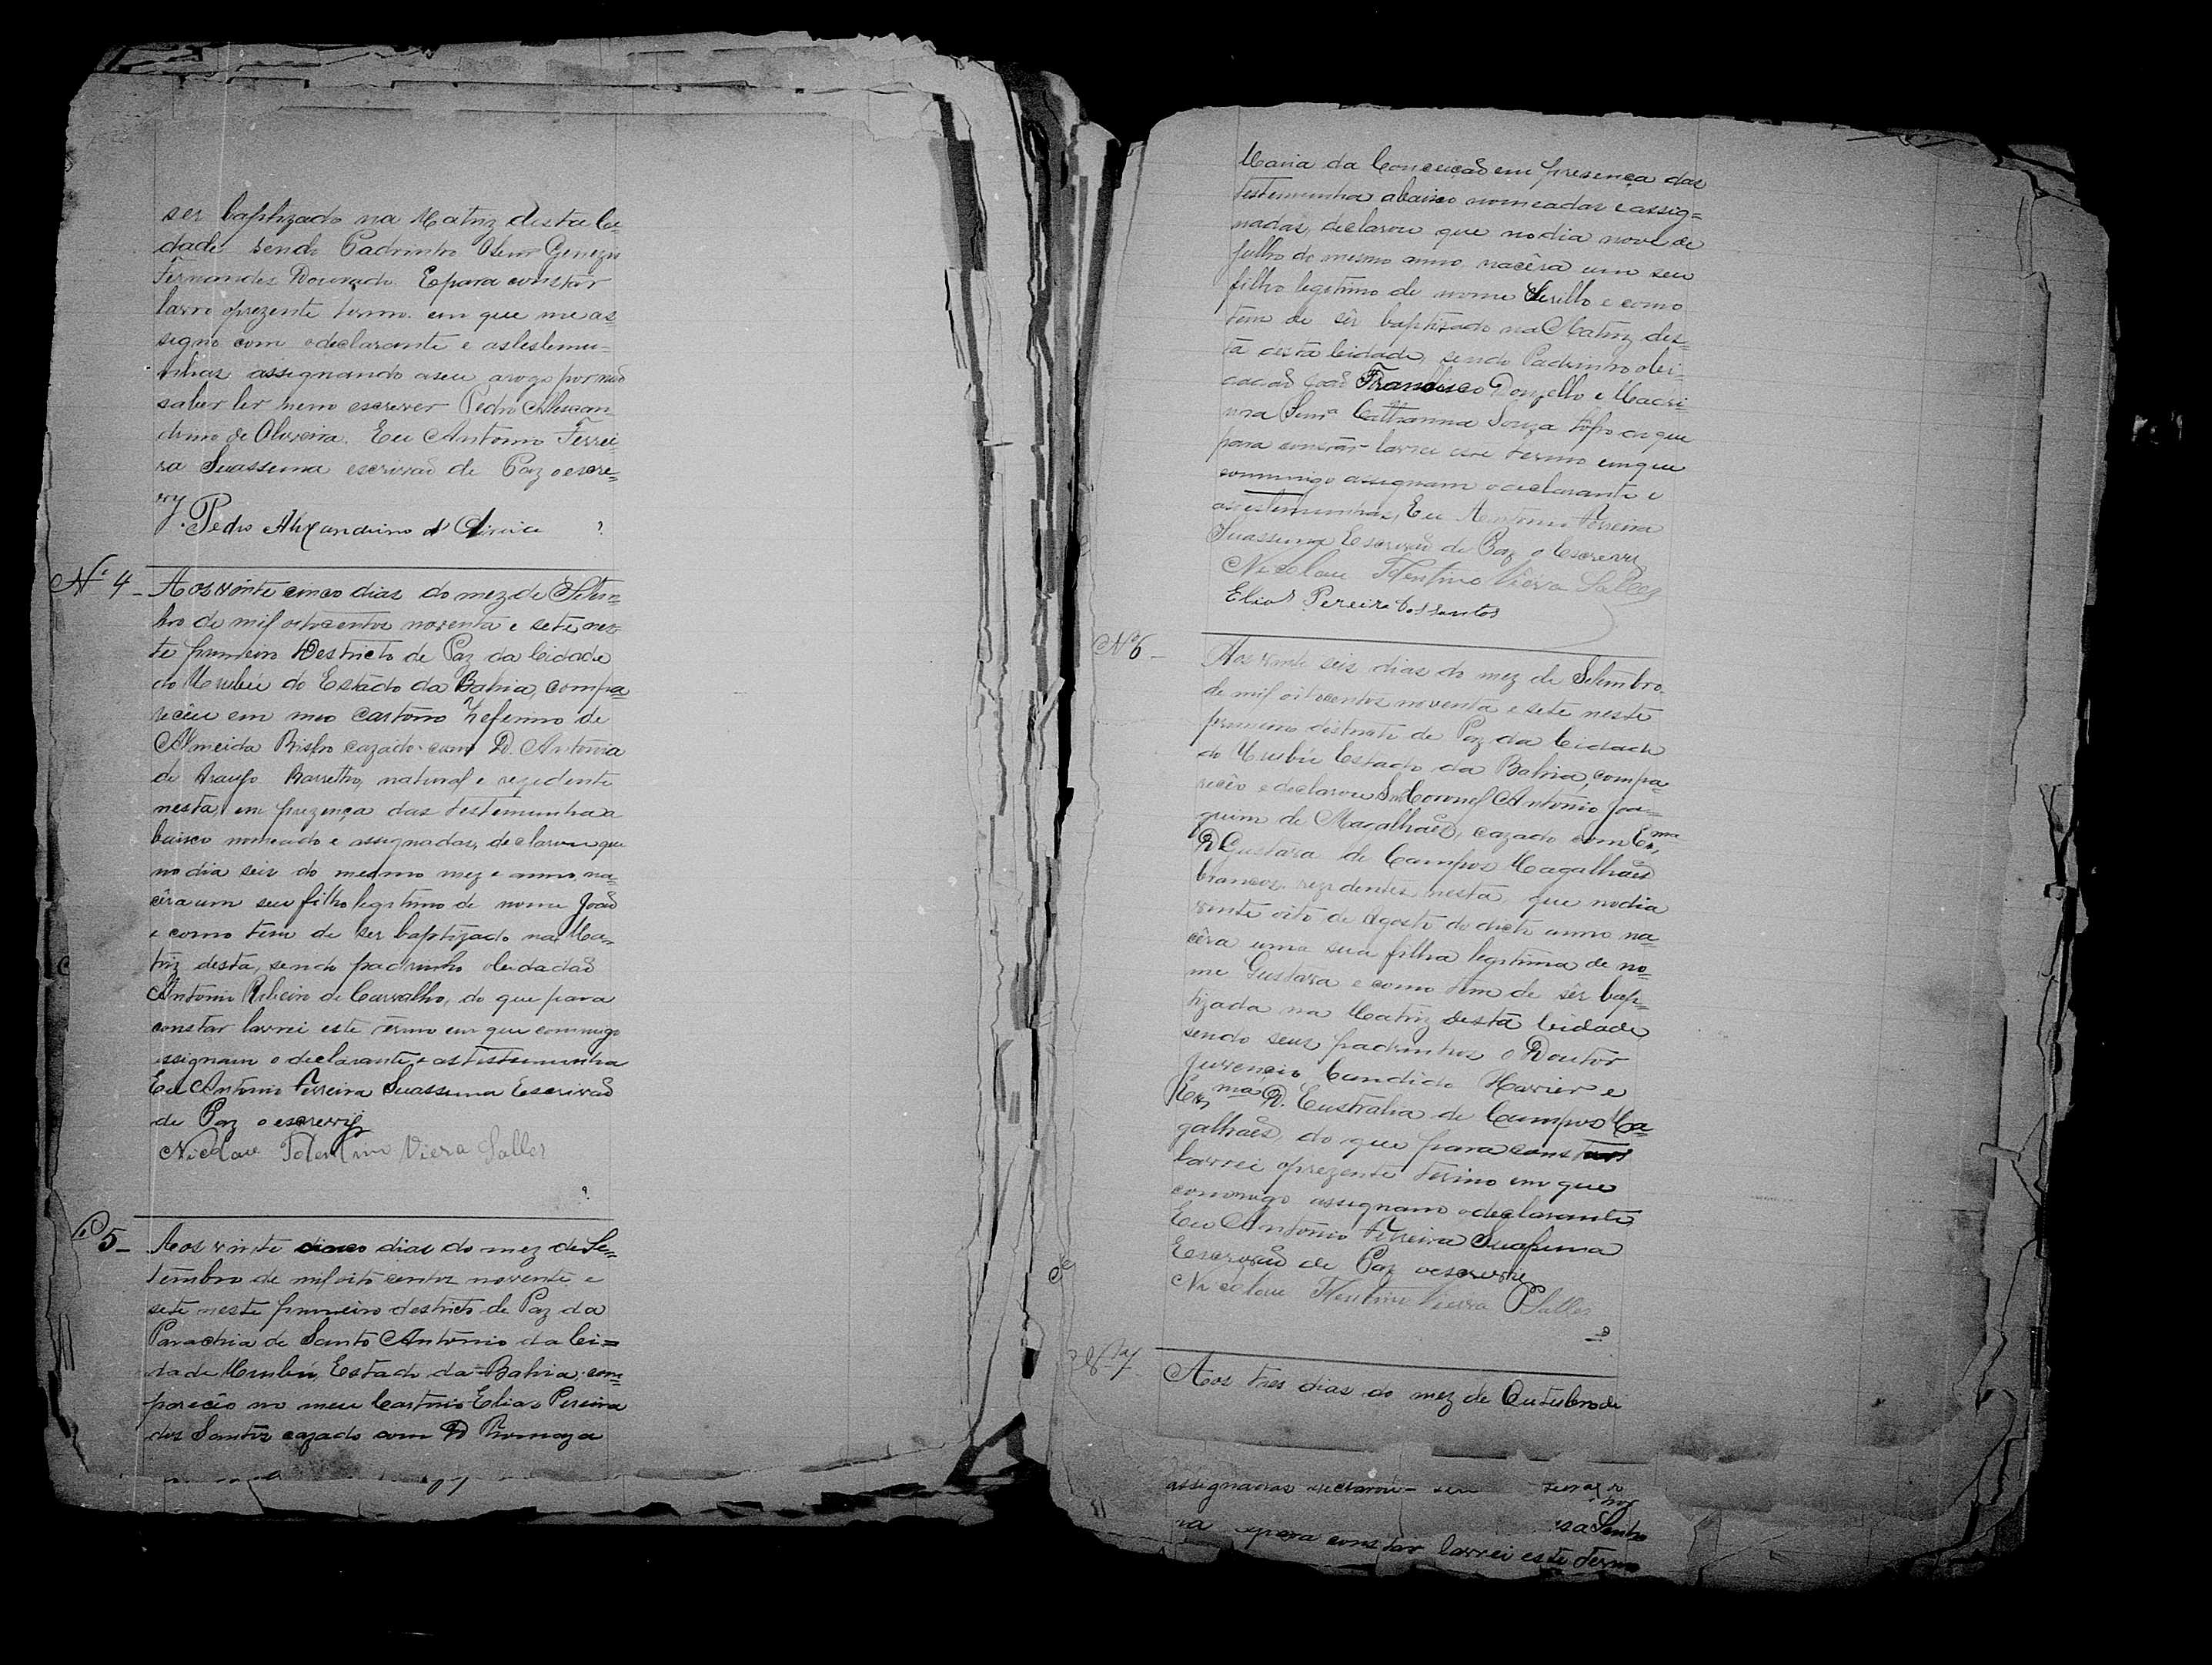 ser baptizado na Matriz desta Ci-
dade sendo Padrinho Genezio
Fernandes Dourado. E para constar
lavro o prezente termo em que me as-
signo com o declarante e as testemu-
nhas assignando a seu arogo por não
saber ler nem escrever Pedro Alexan-
drino de Oliveira. Eu Antonio Ferrei-
ra Suassuna escrivão de Paz o escre-
vy.
Pedro Alexandrino d'
Nº 4 - Aos vinte cinco dias do mez de Setem-
bro de mil oitocentos noventa e sete nes-
te primeiro Destricto de Paz da Cidade
do Urubú do Estado da Bahia, compa-
recêu em meo Cartorio Zeferino de
Almeida Bispo cazado com D. Antonia
de Araujo Barretto, natural e rezidente
nesta, em prezença das testemunha a
baixo nomeado e assignadas, declarou que
no dia seis do mesmo mez e anno na-
cêra um seu filho legitimo de nome João
e como tem de ser baptizado na Ma-
triz desta, sendo padrinho o Cidadão
Antonio Ribeiro de Carvalho, do que para
constar lavrei este termo em que commigo
assignam o declarante e as testemunha
Eu Antonio Ferreira Suassuna Escrivão
de Paz o escrevy
Nicolau Tolentino Viera Salles
Nº 5 - Aos vinte cinco dias do mez de Se-
tembro de mil oito centos novente e
sete neste primeiro destricto de Paz da
Parochia de Santo Antonio da Ci=
dade Urubú, Estado da Bahia, com-
parecêo no meu Cartorio Elias Pereira
dos Santos cazado com D
Maria da Conceicão em presença das
testemunha abaixo nomeadas e assig=
nadas, declarou que no dia nove de
Julho do mesmo anno nacêra um seu
filho legitimo de nome e como
tem de sêr baptizado na Matriz des-
ta desta Cidade, sendo Padrinho o Ci-
dadão João Francisco e
Catharina Souza do que
para constar lavrei este termo em que
commigo assignam o declarante e
as testemunhas, Eu Antonio Ferreira
Suassuna Escrivão de Paz o Escrevy
Nicolau Tolentino Vieira Salles
Elias Pereira dos santos
Nº 6 - Aos vinte seis dias do mez de Setembro
de mil oitocentos noventa e sete neste
primeiro distrito de Paz da Cidade
do Urubú Estado da Bahia, compa-
recêo e declarou Coronel Antonio Joa-
quim de Magalhães, cazado com Exma
D Gustava de Campos Magalhães
brancos rezidentes nesta, que no dia
vinte oito de Agosto do dicto anno na-
cêra uma sua filha legitima de no-
me Gustava e como tem de sêr bap-
tizada na Matriz desta Cidade
sendo seus padrinhos o Doutor
Juvencio Candido Xavier e
Exma D. Eustralia de Campos Ma-
galhães, do que para constar
lavrei o prezente termo em que
commigo assignam o declarante
Eu Antonio Ferreira Suassuna
Escrivão de Paz o escrevi
Nicolau Tolentino Vieira Salles
Nº 7 - Aos tres dias do mez de Outubro de
assignadas declarou
para constar lavrei este termo